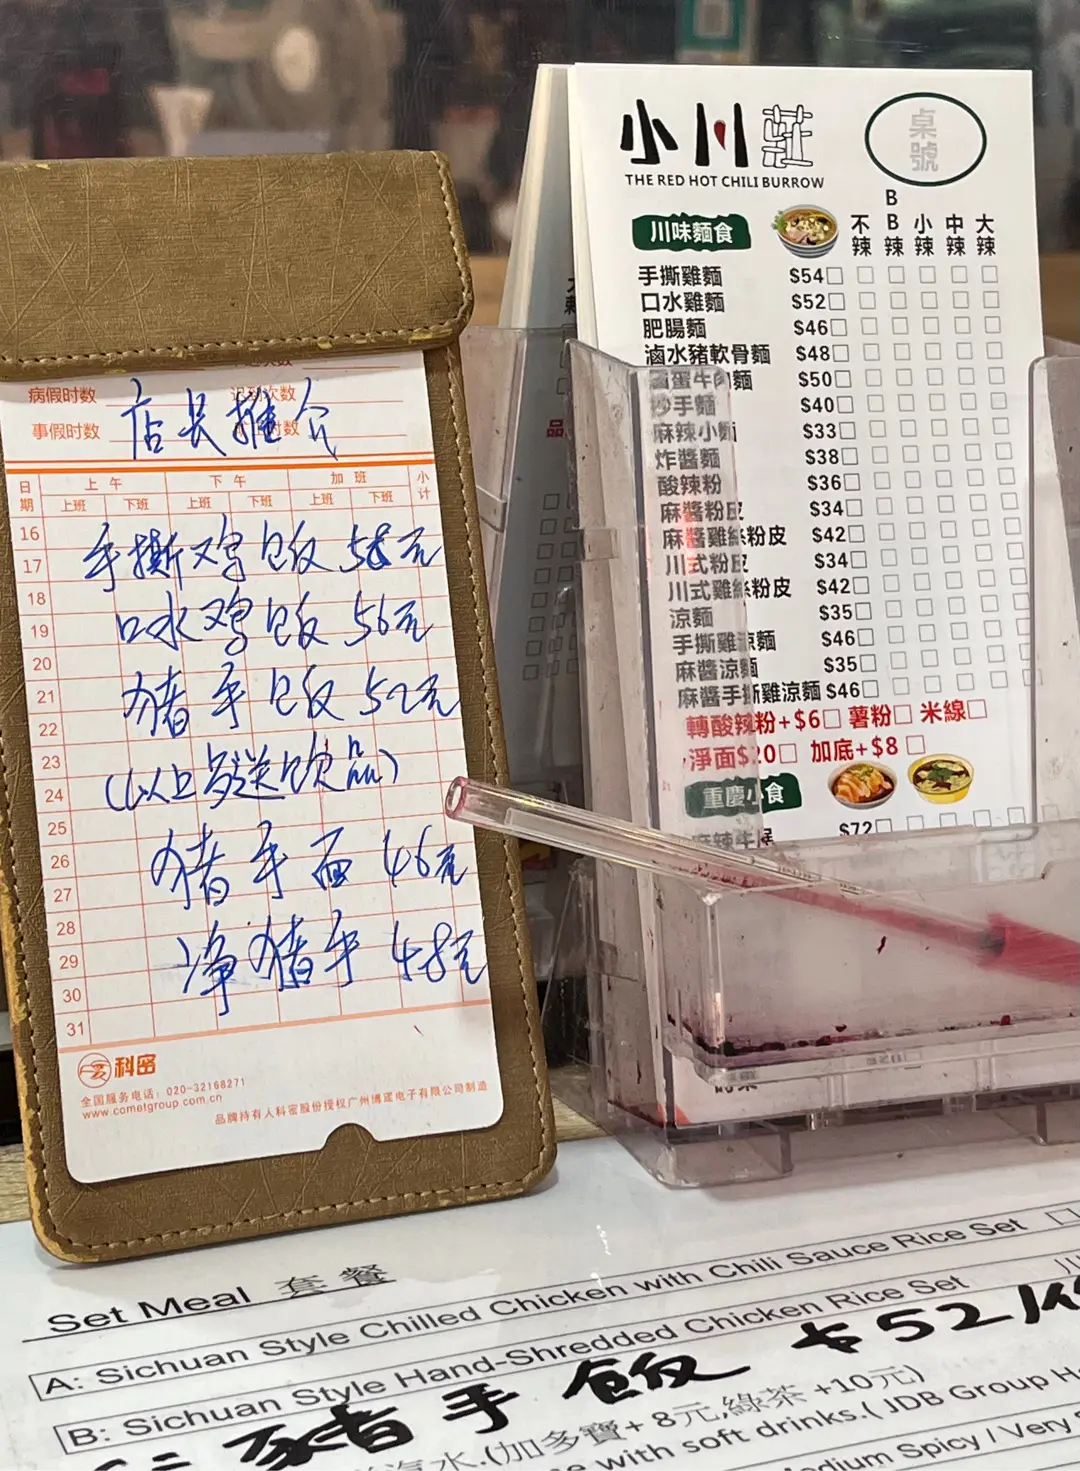 病假时数
迟到次数
事假时数
时数
店长推介
日期
上午
下午
加班
小计
上班
下班
上班
下班
上班
下班
16
17
手撕鸡饭 58元
18
19
口水鸡饭 56元
20
21
猪手饭 52元
22
23
(以上多送饮品)
24
25
26
猪手面 46元
27
28
29
净猪手 48元
30
31
科密
全国服务电话：020-32168271
www.cometgroup.com.cn
品牌持有人科密股份授权广州博莲电子有限公司制造
小川莊
THE RED HOT CHILI BURROW
桌號
川味麵食
不辣
BB辣
小辣
中辣
大辣
手撕雞麵 $54
口水雞麵 $52
肥腸麵 $46
滷水豬軟骨麵 $48
牛肉麵 $50
抄手麵 $40
麻辣小麵 $33
炸醬麵 $38
酸辣粉 $36
麻醬粉皮 $34
麻醬雞絲粉皮 $42
川式粉皮 $34
川式雞絲粉皮 $42
涼麵 $35
手撕雞涼麵 $46
麻醬涼麵 $35
麻醬手撕雞涼麵 $46
轉酸辣粉+$6 薯粉 米線
淨面$20 加底+$8
重慶小食
麻辣牛 $72
Set Meal 套餐
A: Sichuan Style Chilled Chicken with Chili Sauce Rice Set
B: Sichuan Style Hand-Shredded Chicken Rice Set
豬手飯 $52
汽水.(加多寶+ 8元,綠茶 +10元)
with soft drinks.( JDB Group H
Spicy / Very